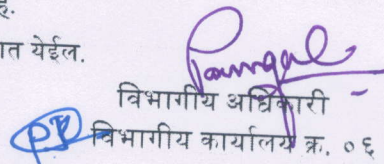 ह.
ात येईल.
विभागीय अधिकारी
विभागीय कार्यालय क्र. ०६